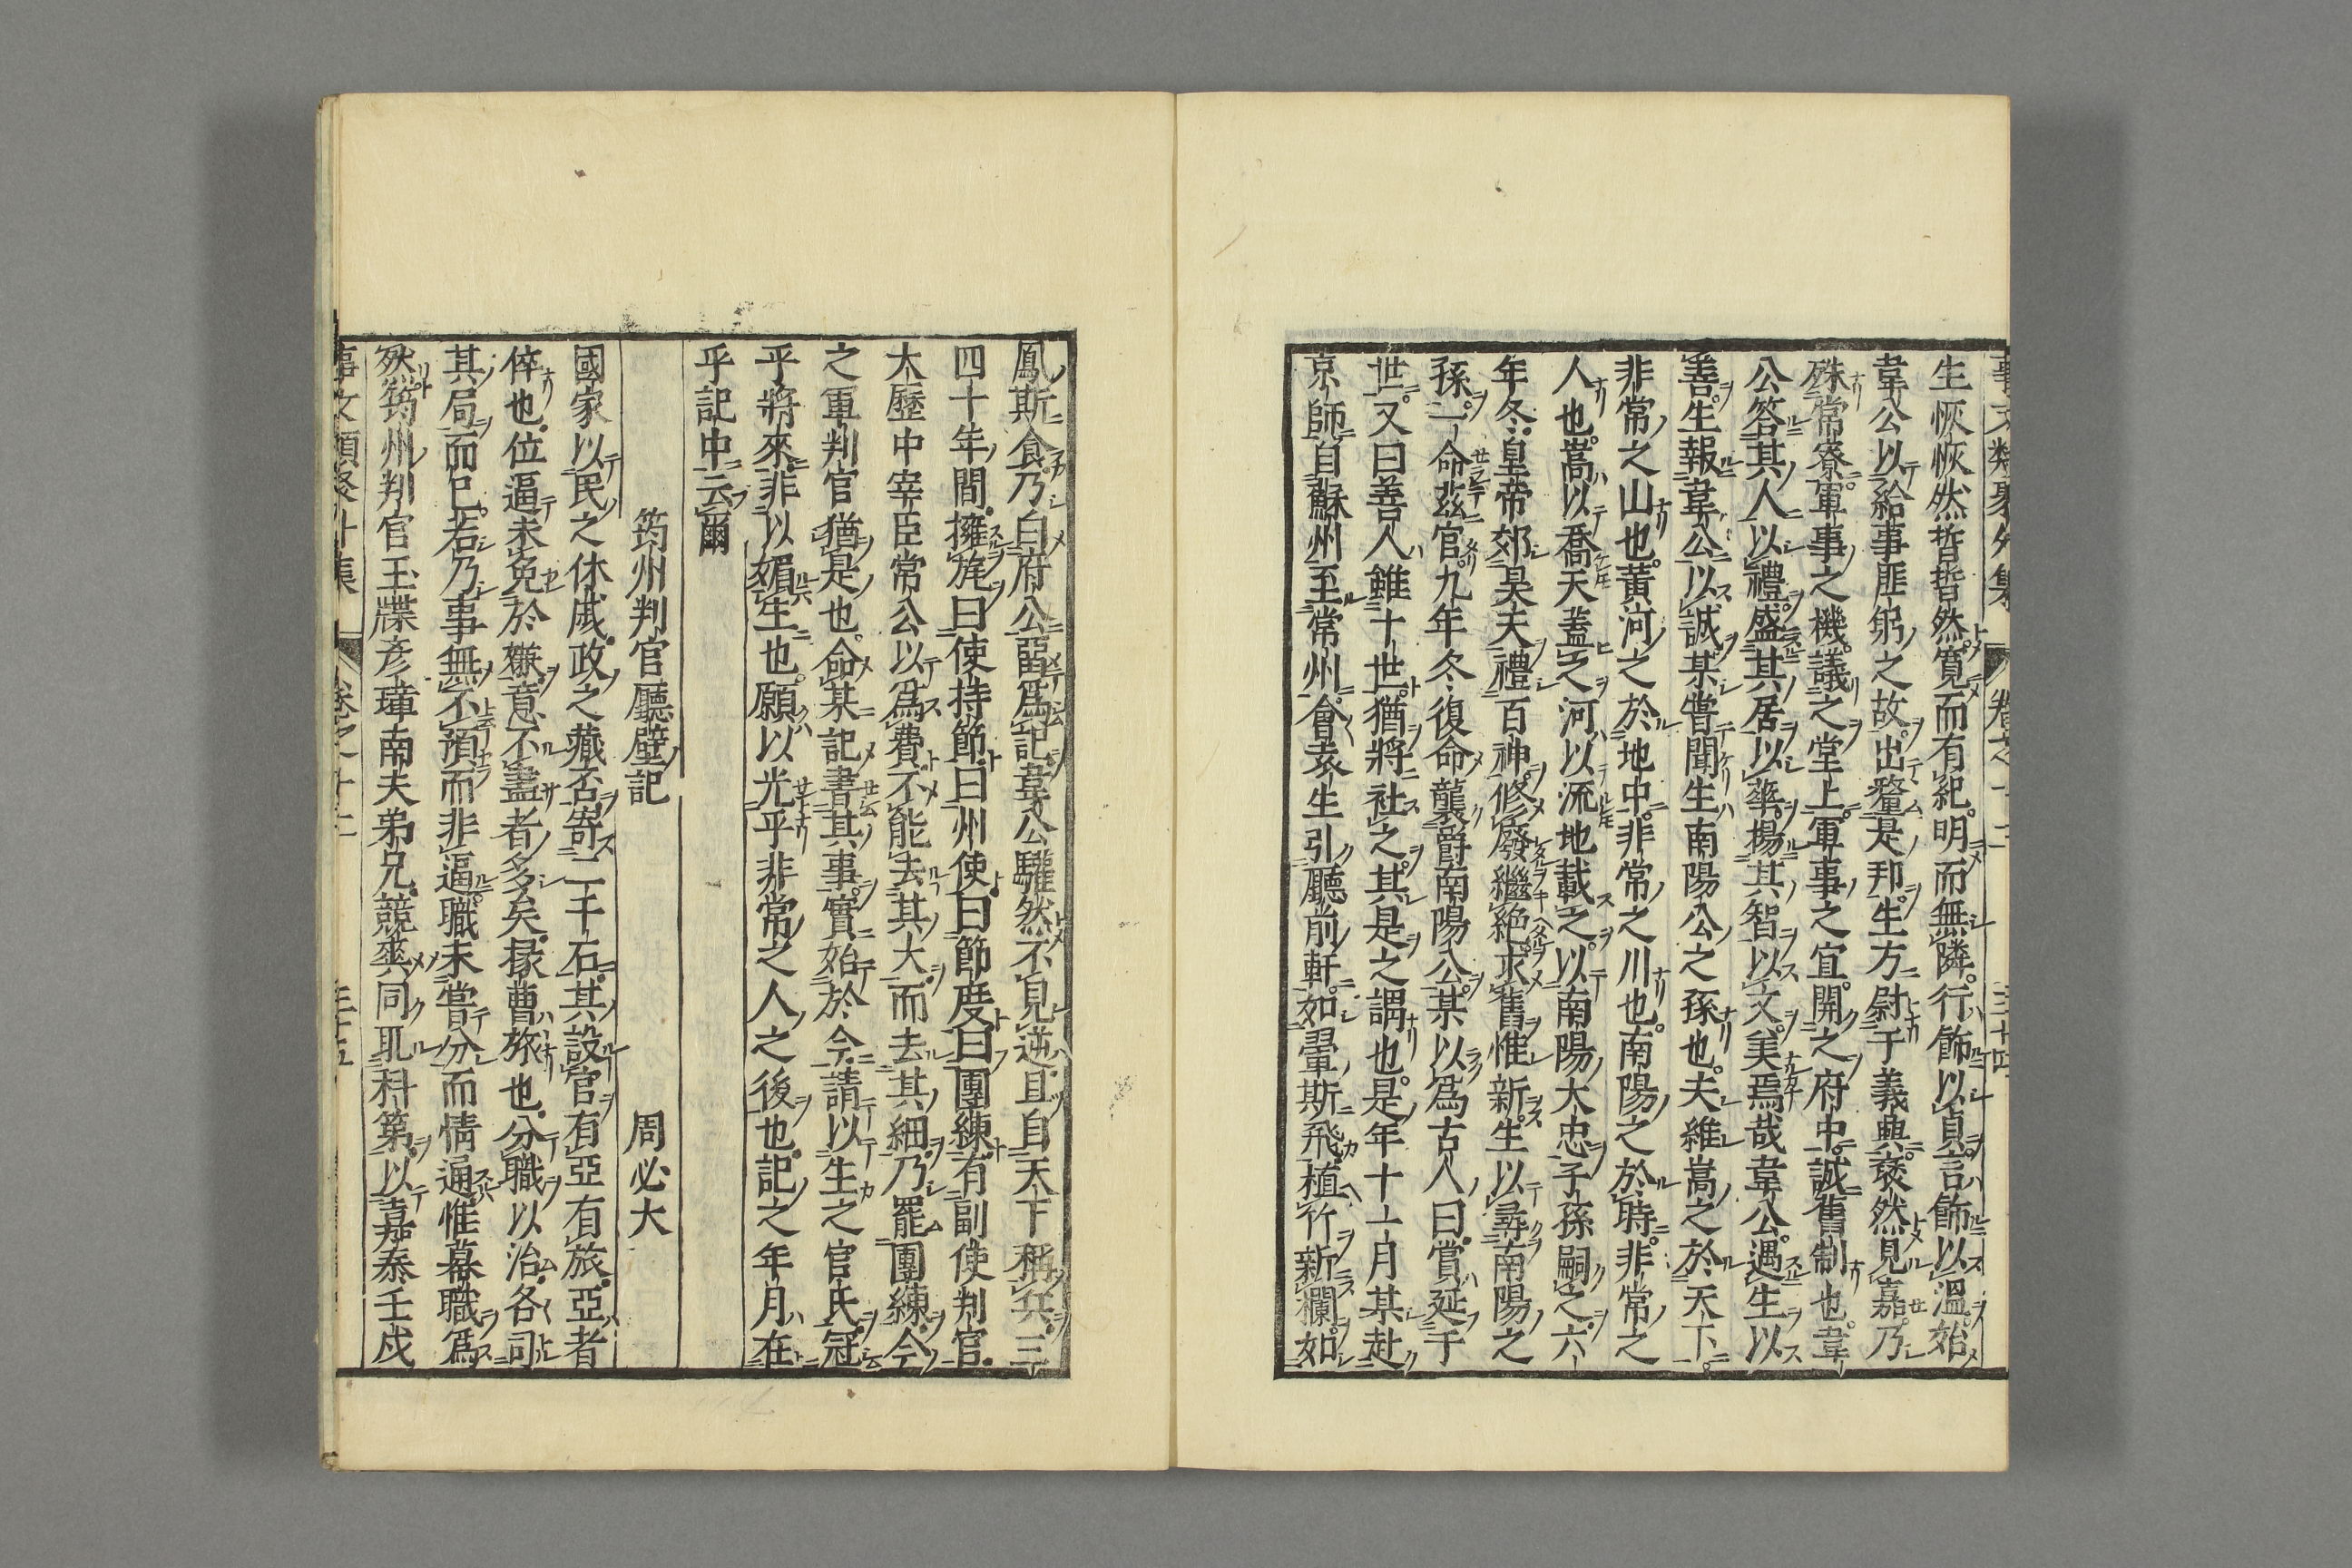 事文類聚外集 卷之十二 三十四
生恢恢然晢晢然寬而有紀明而無隣行飾以貞言飾以溫始
韋公以給事匪躬之故出釐是邦生方尉于義興褎然見嘉乃
殊常寮軍事之機議之堂上軍事之宜開之府中誠舊制也韋
公答其人以禮盛其居以華揚其智以文美焉哉韋公遇生以
善生報韋公以誠某嘗聞生南陽公之孫也夫維嵩之於天下
非常之山也黃河之於地中非常之川也南陽之於時非常之
人也嵩以喬天蓋之河以流地載之以南陽大忠子孫嗣之六
年冬皇帝郊昊天禮百神修廢繼絕求舊惟新生以尋南陽之
孫一命茲官九年冬復命襲爵南陽公某以為古人曰賞延于
世又曰善人雖十世猶將社之其是之謂也是年十一月某赴
京師自蘇州至常州會袁生引廳前軒如翬斯飛植竹新欄如
鳳斯食乃白府公亞為記韋公驩然不見逆且自天下稱兵三
四十年間擁旄曰使持節曰州使曰節度曰團練有副使判官
大歷中宰臣常公以為費不能去其大而去其細乃罷團練今
之軍判官猶是也命某記書其事實始於今請以生之官氏冠
乎將來非以媚生也願以光乎非常之人之後也記之年月在
乎記中云爾
筠州判官廳壁記 周必大
國家以民之休戚政之藏否寄二千石其設官有亞有旅亞者
倅也位逼未免於嫌意不盡者多矣掾曹旅也分職以治各司
其局而已若乃事無不預而非逼職未嘗分而情通惟幕職為
然筠州判官玉牒彥璋南夫弟兄競爽同取科第以嘉泰壬戌
事文類聚外集 卷之十二 三十五